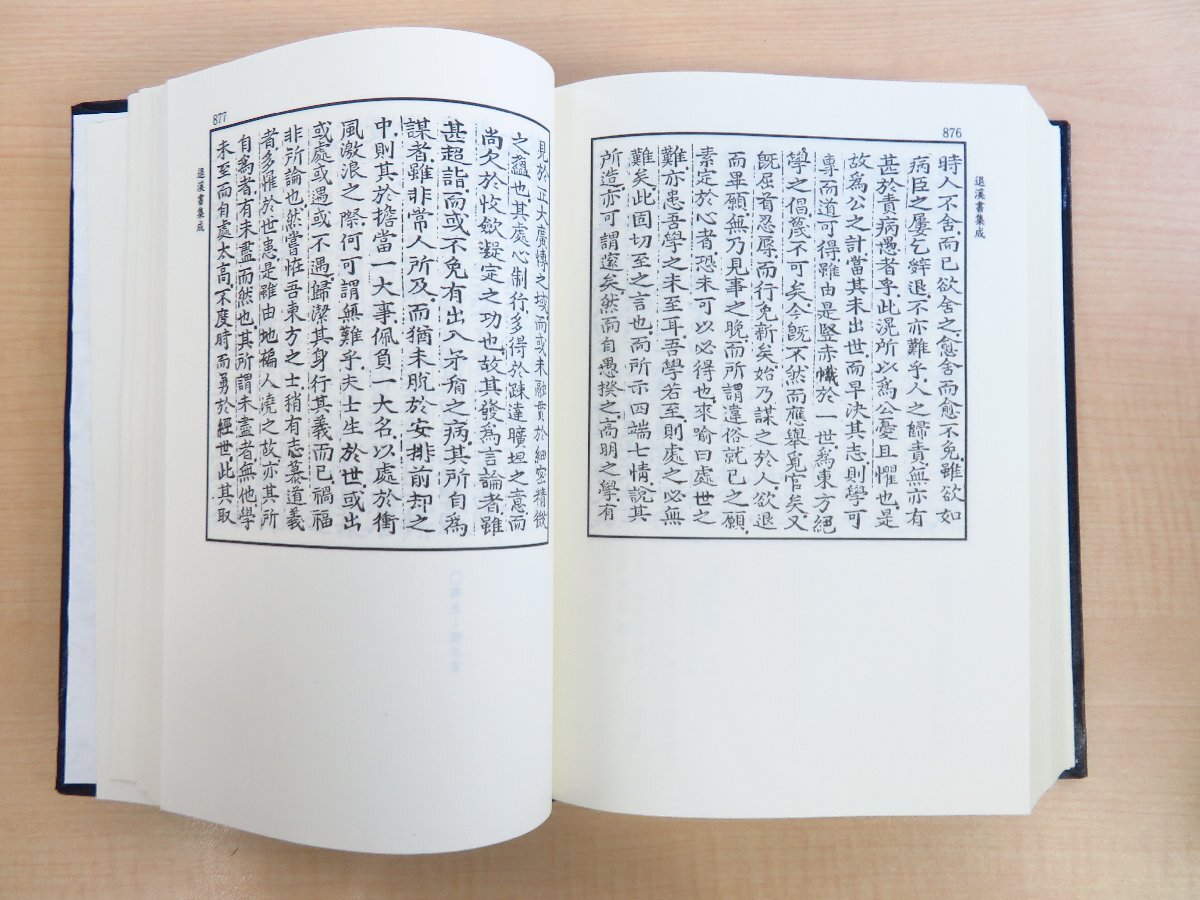 876
退溪書集成
時人不舍,而已欲舍之,愈舍而愈不免,雖欲如
病臣之屢乞辭退,不亦難乎,人之歸責,無亦有
甚於責病愚者乎,此滉所以爲公憂且懼也,是
故爲公之計當其未出世而早決其志則學可
專而道可得雖由是竪赤幟於一世,爲東方絕
學之倡,蔑不可矣,今旣不然而應擧覓官矣,又
旣屈首忍辱,而行免新矣,始乃謀之於人,欲退
而畢願,無乃見事之晚,而所謂違俗就已之願,
素定於心者,恐未可以必得也,來喩曰處世之
難,亦患吾學之未至耳,吾學若至,則處之必無
難矣,此固切至之言也,而所示四端七情說,其
所造,亦可謂邃矣,然而自愚揆之,高明之學,有
877
退溪書集成
見於正大廣博之域,而或未融貫於細密精微
之蘊也,其處心制行,多得於疎達曠坦之意,而
尚欠於收斂凝定之功也,故其發爲言論者,雖
甚超詣,而或不免有出入矛盾之病,其所自爲
謀者,雖非常人所及,而猶未脫於安排前却之
中,則其於擔當一大事,佩負一大名,以處於衝
風激浪之際,何可謂無難乎,夫士生於世,或出
或處,或遇或不遇,歸潔其身,行其義而已,禍福
非所論也,然嘗恠吾東方之士,稍有志慕道義
者,多罹於世患,是雖由地褊人澆之故,亦其所
自爲者,有未盡而然也,其所謂未盡者,無他,學
未至而自處太高,不度時而勇於經世,此其取